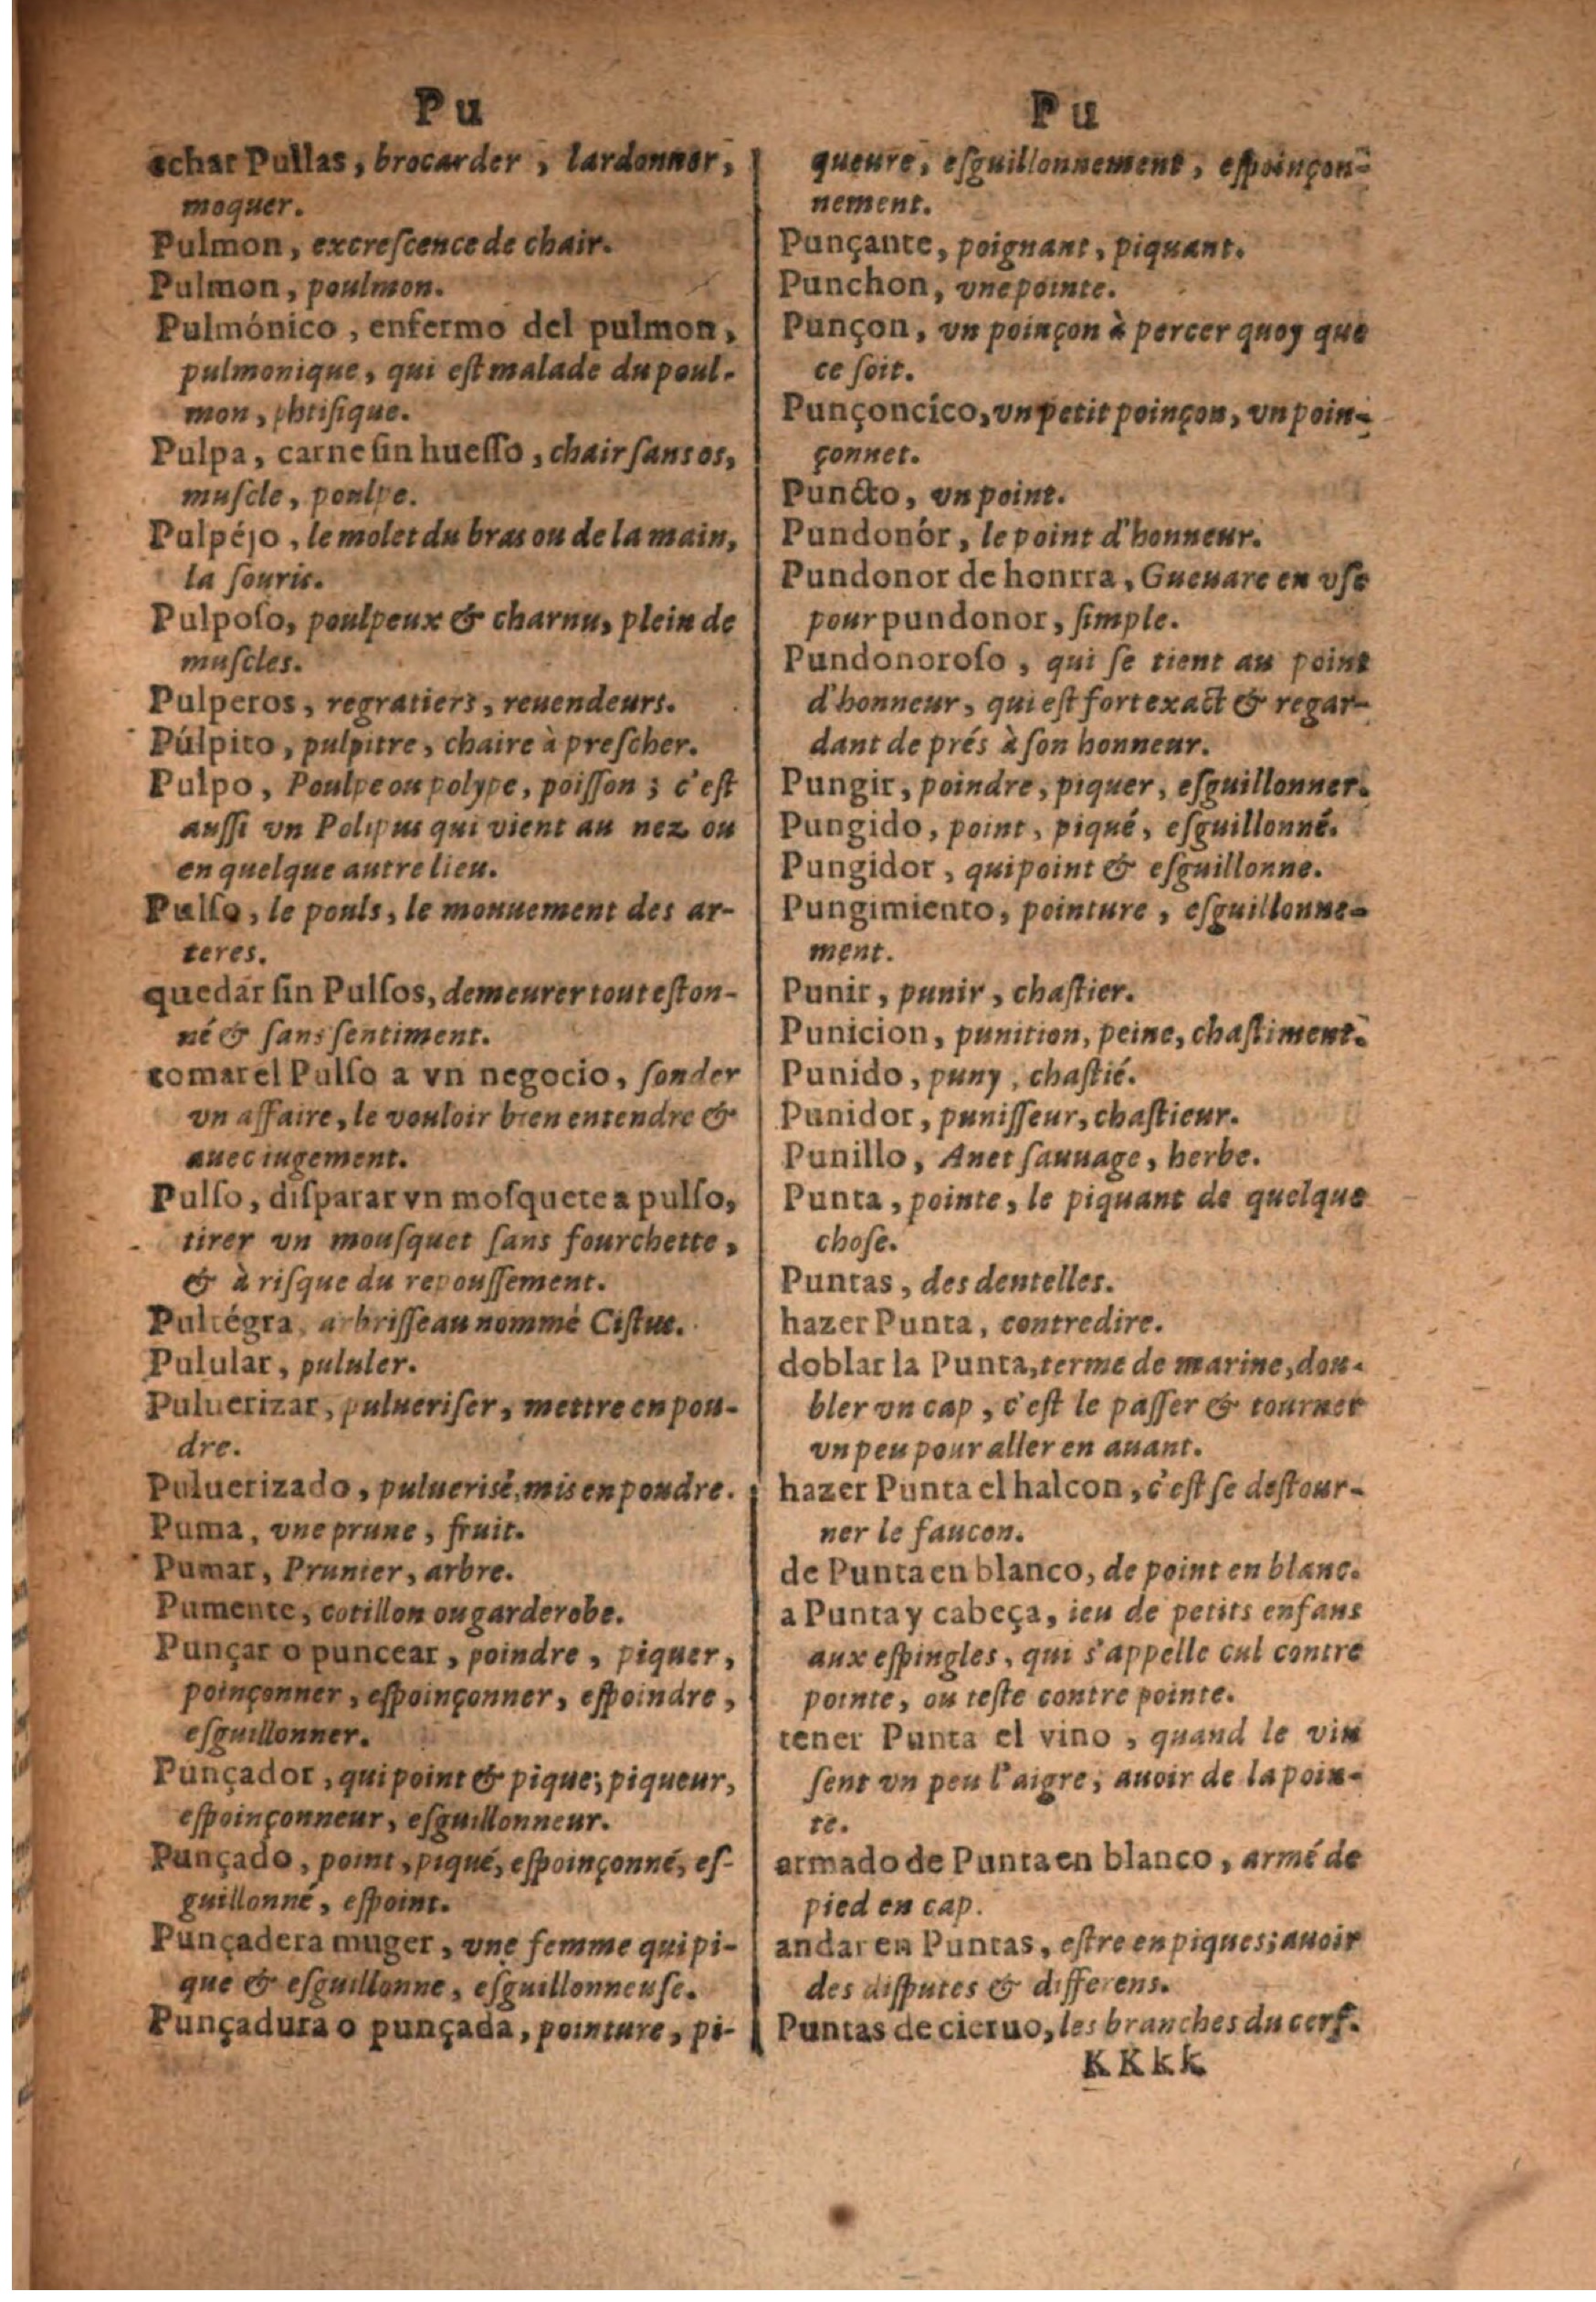 Pu
echar Pullas, brocarder, lardonner,
moquer.
Pulmon, excreſcence de chair.
Pulmon, poulmon.
Pulmónico, enfermo del pulmon,
pulmonique, qui eſt malade du poul-
mon, phtiſique.
Pulpa, carne ſin hueſſo, chair ſans os,
muſcle, poulpe.
Pulpéjo, le molet du bras ou de la main,
la ſouris.
Pulpoſo, poulpeux & charnu, plein de
muſcles.
Pulperos, regratiers, reuendeurs.
Púlpito, pulpitre, chaire à preſcher.
Pulpo, Poulpe ou polype, poiſſon; c'eſt
auſſi vn Polipus qui vient au nez ou
en quelque autre lieu.
Pulſo, le pouls, le mouuement des ar-
teres.
quedar ſin Pulſos, demeurer tout eſton-
né & ſans ſentiment.
tomar el Pulſo a vn negocio, ſonder
vn affaire, le vouloir bien entendre &
auec iugement.
Pulſo, diſparar vn moſquete a pulſo,
tirer vn mouſquet ſans fourchette,
& à riſque du repouſſement.
Pultégra, arbriſſeau nommé Ciſtus.
Pulular, pululer.
Puluerizar, pulueriſer, mettre en pou-
dre.
Puluerizado, pulueriſé, mis en poudre.
Puma, vne prune, fruit.
Pumar, Prunier, arbre.
Pumente, cotillon ou garderobe.
Punçar o puncear, poindre, piquer,
poinçonner, eſpoinçonner, eſpoindre,
eſguillonner.
Punçador, qui point & pique; piqueur,
eſpoinçonneur, eſguillonneur.
Punçado, point, piqué, eſpoinçonné, eſ-
guillonné, eſpoint.
Punçadera muger, vne femme qui pi-
que & eſguillonne, eſguillonneuſe.
Punçadura o punçada, pointure, pi-
Pu
queure, eſguillonnement, eſpoinçon-
nement.
Punçante, poignant, piquant.
Punchon, vne pointe.
Punçon, vn poinçon à percer quoy que
ce ſoit.
Punçoncico, vn petit poinçon, vn poin-
çonnet.
Puncto, vn point.
Pundonór, le point d'honneur.
Pundonor de honrra, Gueuare en vſe
pour pundonor, ſimple.
Pundonoroſo, qui ſe tient au point
d'honneur, qui eſt fort exact & regar-
dant de prés à ſon honneur.
Pungir, poindre, piquer, eſguillonner.
Pungido, point, piqué, eſguillonné.
Pungidor, qui point & eſguillonne.
Pungimiento, pointure, eſguillonne-
ment.
Punir, punir, chaſtier.
Punicion, punition, peine, chaſtiment.
Punido, puny, chaſtié.
Punidor, puniſſeur, chaſtieur.
Punillo, Anet ſauuage, herbe.
Punta, pointe, le piquant de quelque
choſe.
Puntas, des dentelles.
hazer Punta, contredire.
doblar la Punta, terme de marine, dou-
bler vn cap, c'eſt le paſſer & tourner
vn peu pour aller en auant.
hazer Punta el halcon, c'eſt ſe deſtour-
ner le faucon.
de Punta en blanco, de point en blanc.
a Punta y cabeça, ieu de petits enfans
aux eſpingles, qui s'appelle cul contre
pointe, ou teſte contre pointe.
tener Punta el vino, quand le vin
ſent vn peu l'aigre, auoir de la poin-
te.
armado de Punta en blanco, armé de
pied en cap.
andar en Puntas, eſtre en piques; auoir
des diſputes & differens.
Puntas de cieruo, les branches du cerf.
KKkk